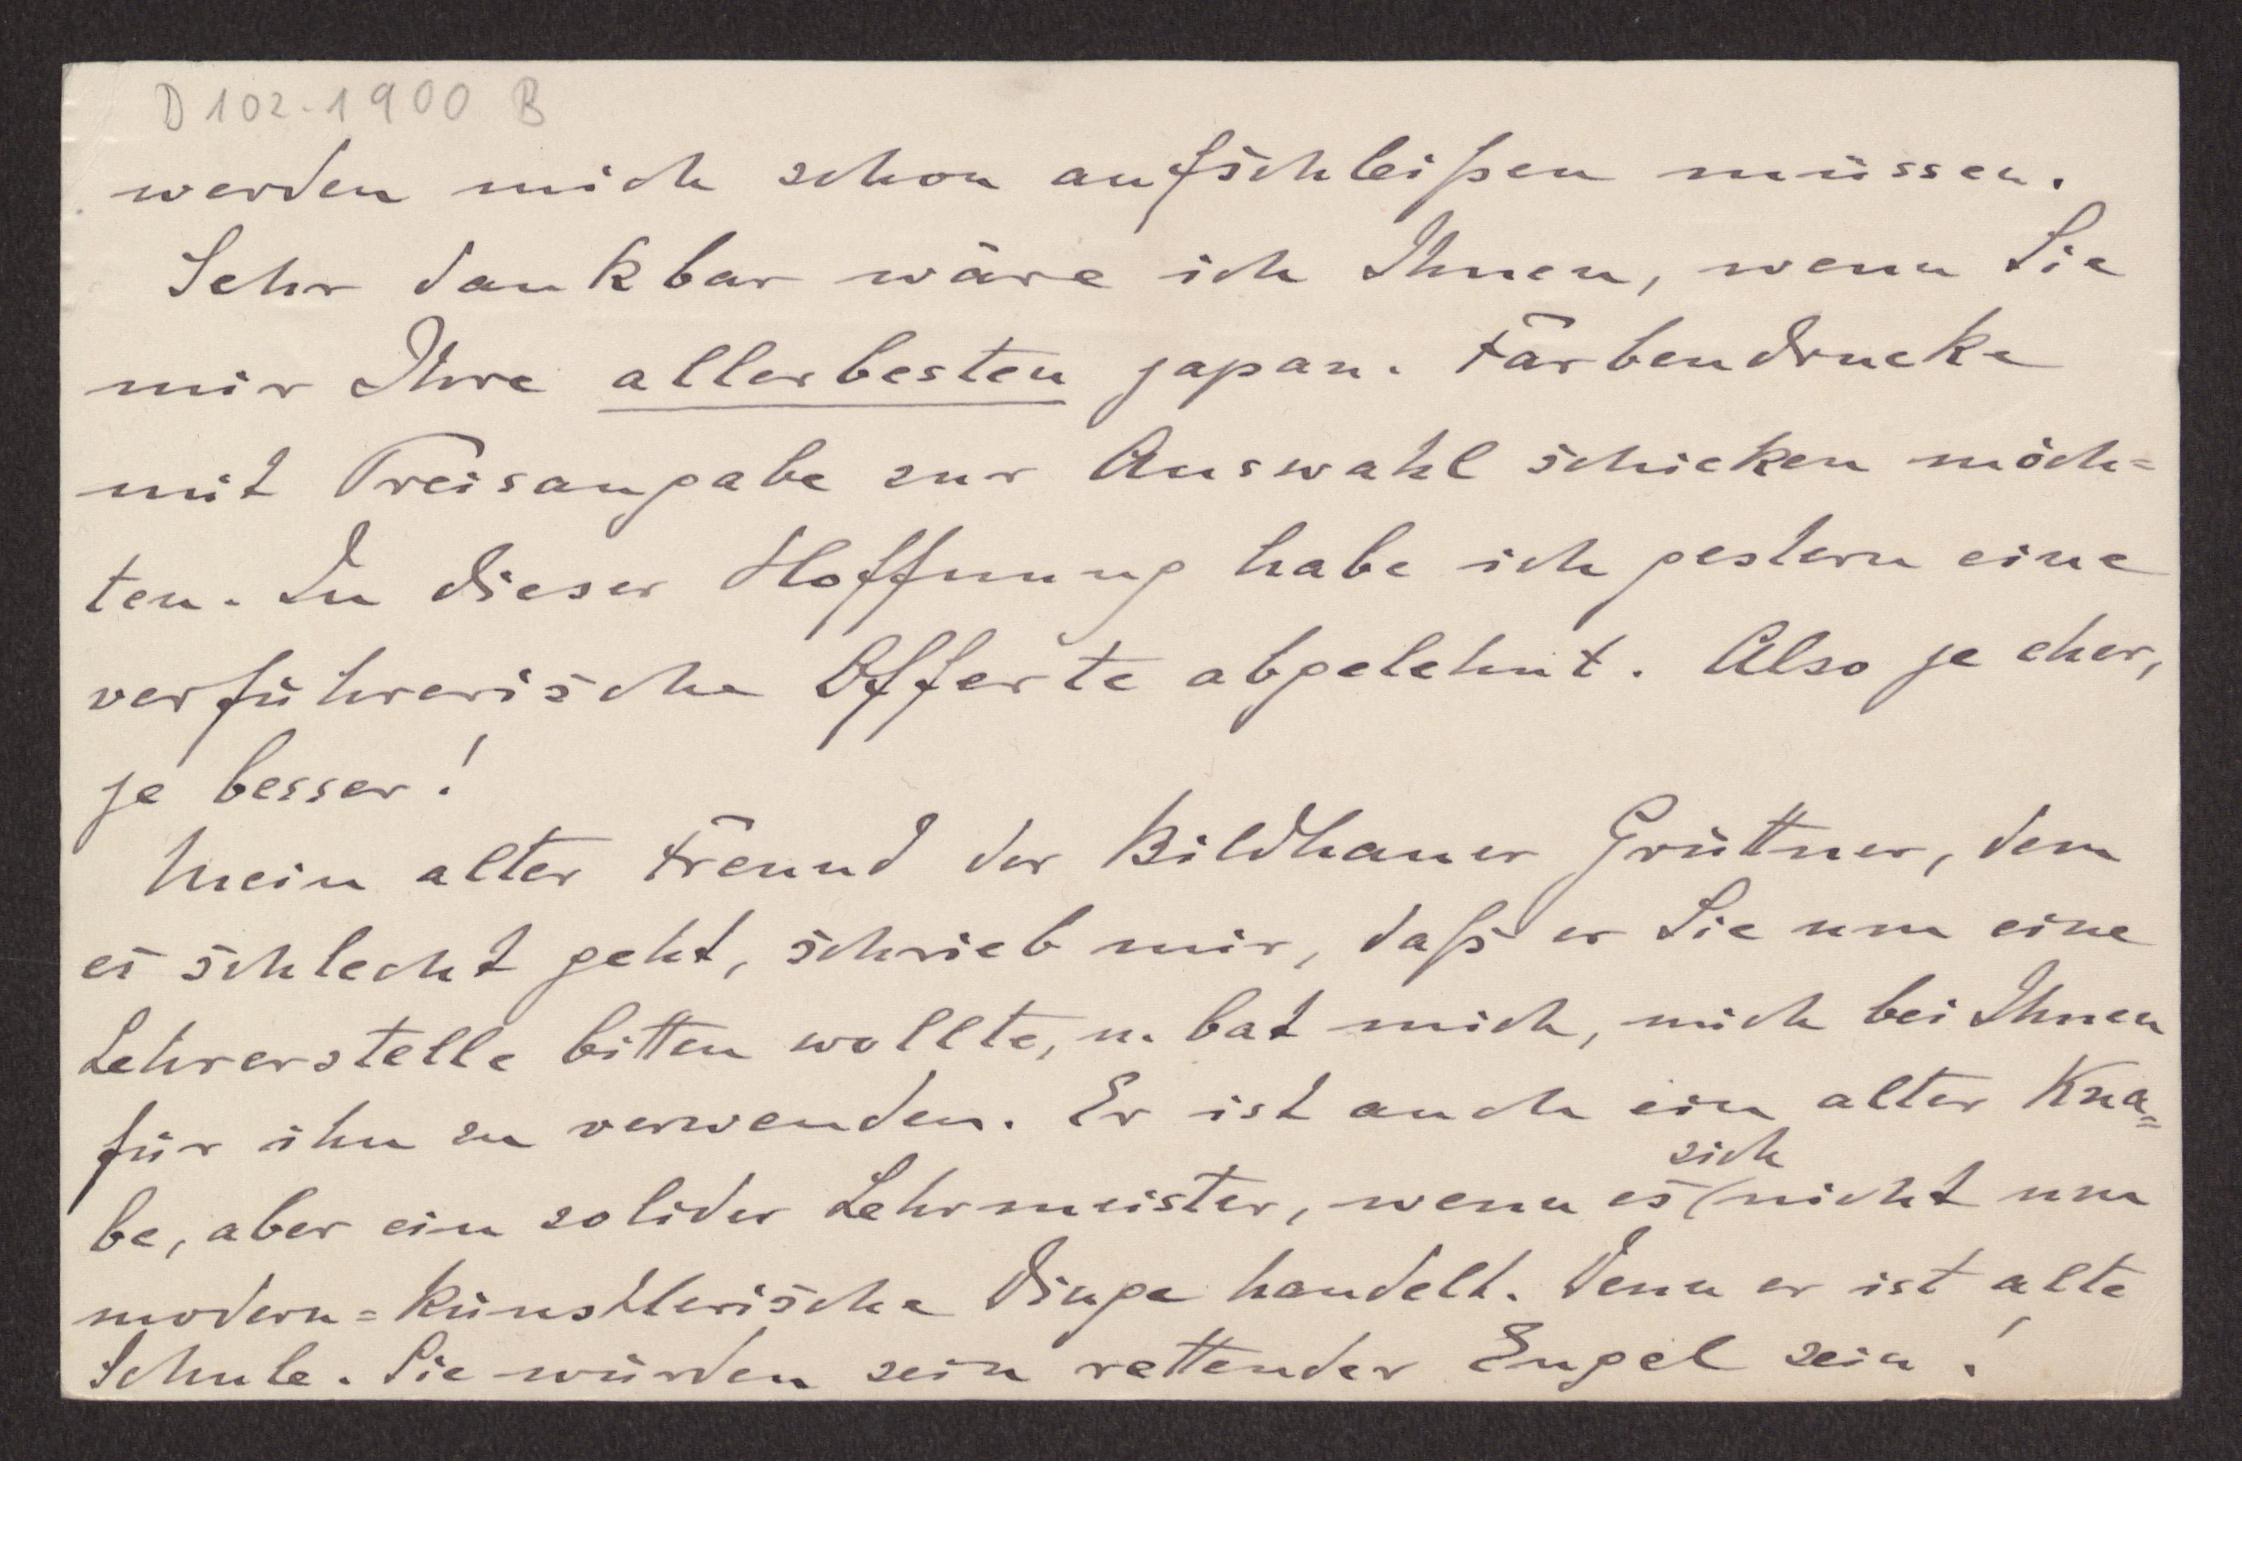 D 102-1900 B
werden mich schon aufschleißen müssen.
Sehr dankbar wäre ich Ihnen, wenn Sie
mir Ihre allerbesten japan. Farbendrucke
mit Preisangabe zur Auswahl schicken möch=
ten. In dieser Hoffnung habe ich gestern eine
verführerische Offerte abgelehnt. Also je eher,
je besser!
Mein alter Freund der Bildhauer Grüttner, dem
es schlecht geht, schrieb mir, daß er Sie um eine
Lehrerstelle bitten wollte, u. bat mich, mich bei Ihnen
für ihn zu verwenden. Er ist auch ein alter Kna=
sich
be, aber ein solider Lehrmeister, wenn es nicht um
modern=künstlerische Dinge handelt. Denn er ist alte
Schule. Sie würden sein rettender Engel sein!